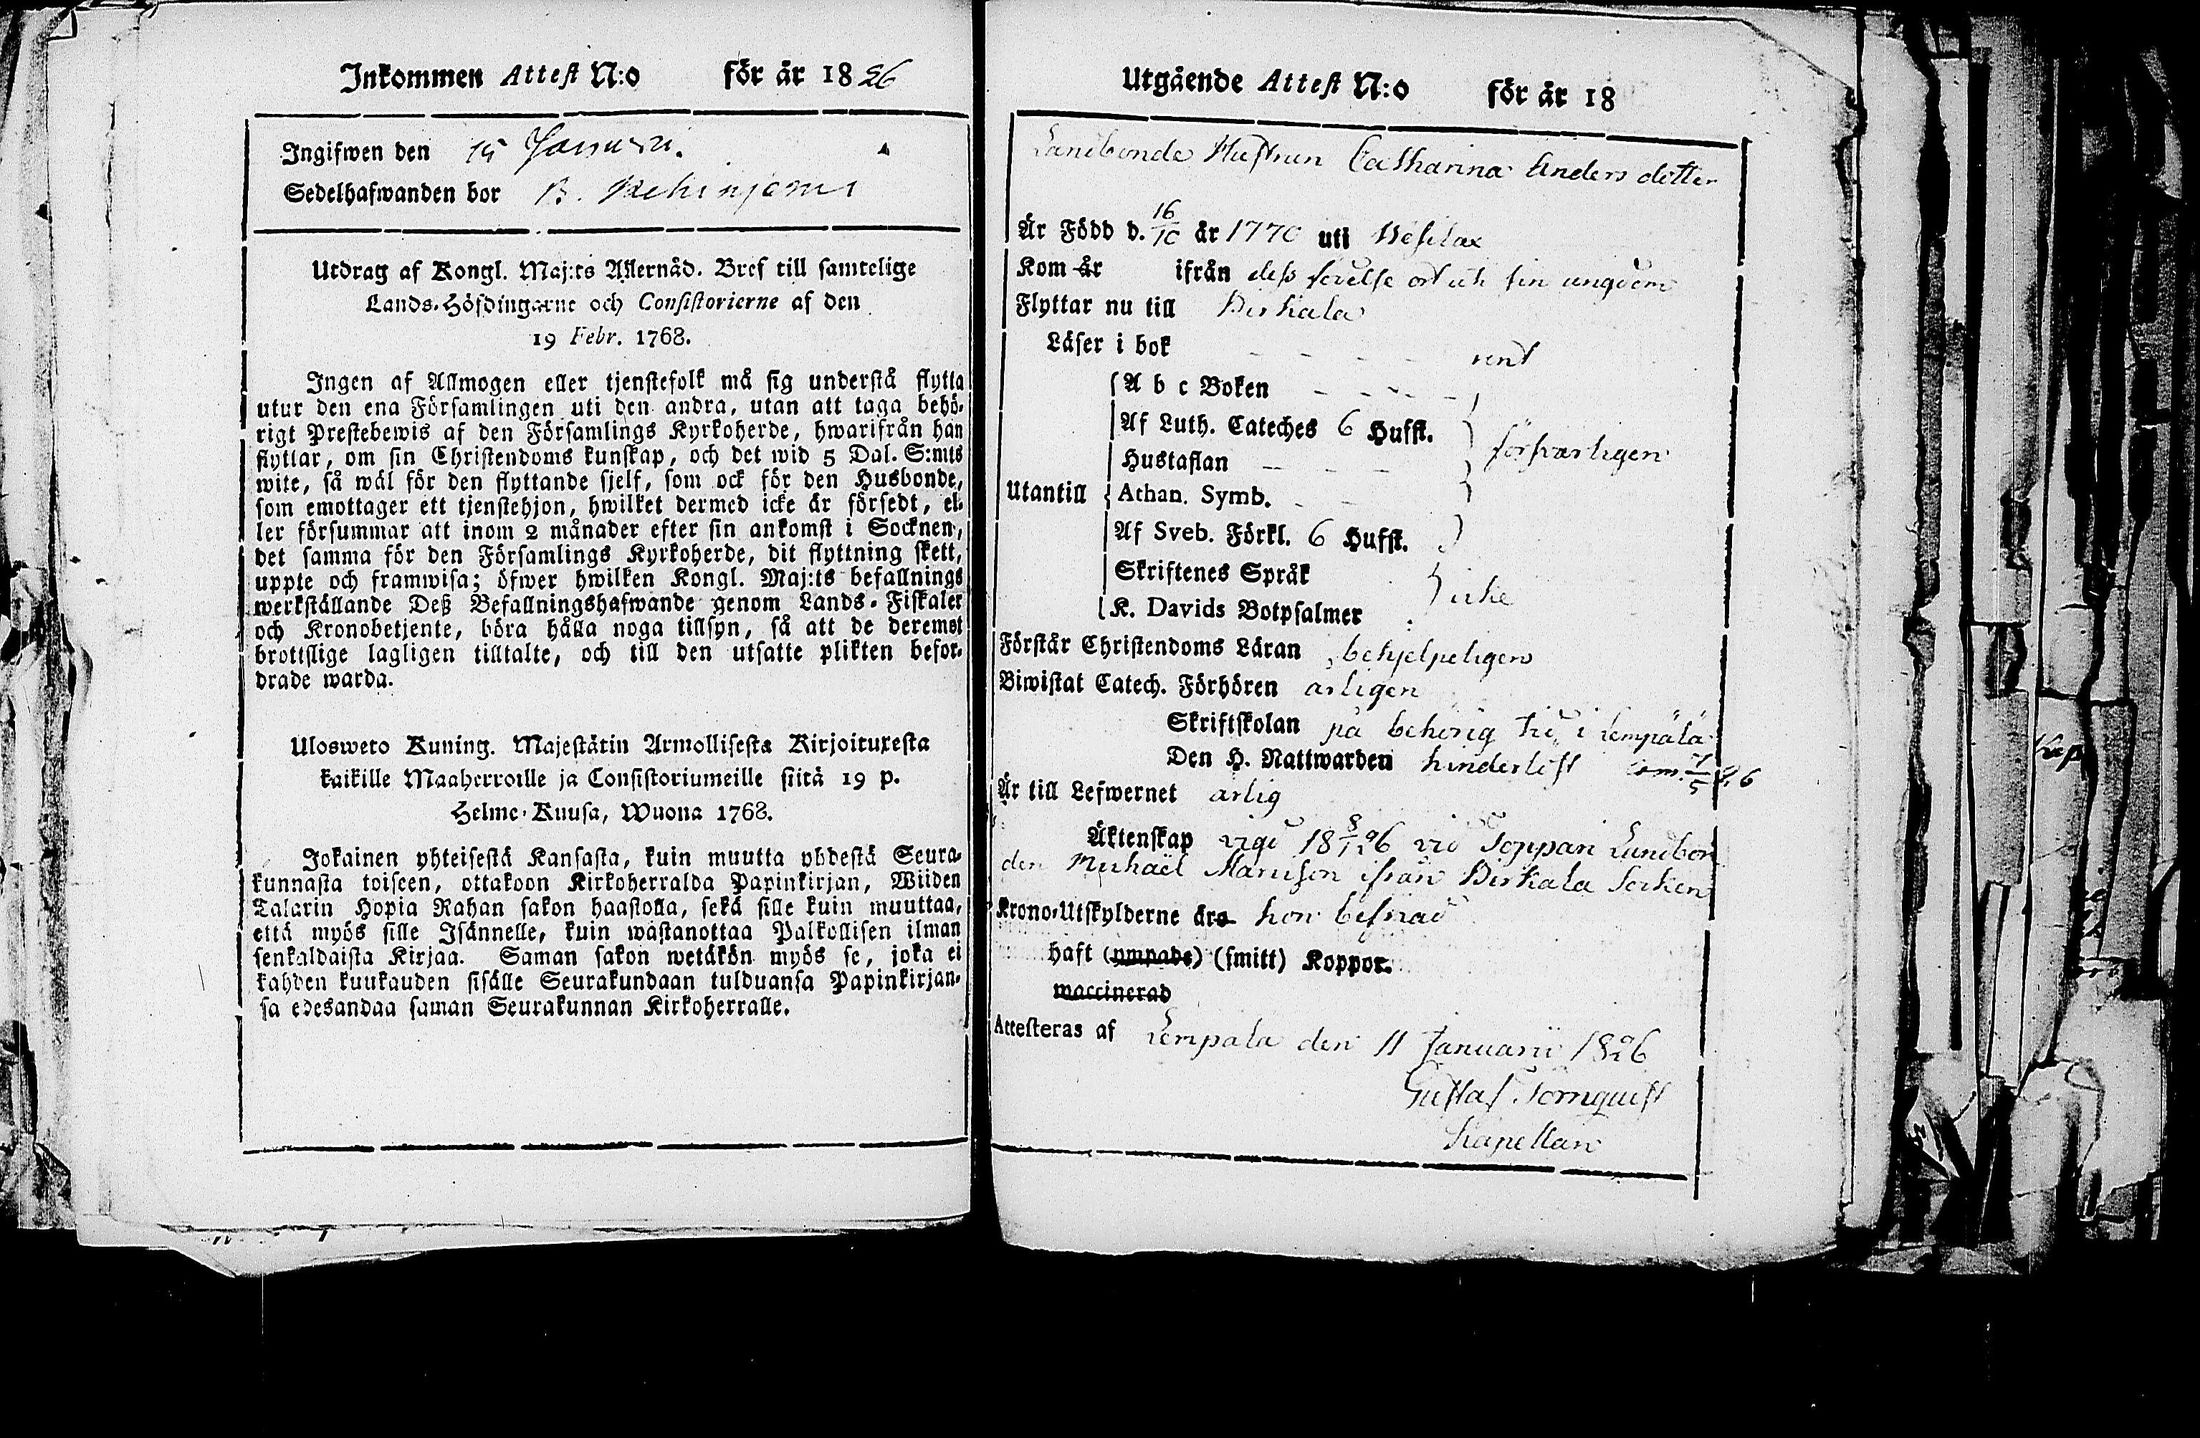 Inkommen Attest N:o för år 1826
Ingifwen den 15 Januari.
Sedelhafwanden bor B.
Utdrag af Kongl. Maj:ts Allernåd. Bref till samtelige
Lands-Höfdingarne och Consistorierne af den
19 Febr. 1768.
Ingen af Allmogen eller tjenstefolk må sig understå flytta
utur den ena Församlingen uti den andra, utan att taga behö-
rigt Prestebewis af den Församlings Kyrkoherde, hwarifrån han
flyttar, om sin Christendoms kunskap, och det wid 5 Dal. S:mts
wite, så wäl för den flyttande sjelf, som ock för den Husbonde,
som emottager ett tjenstehjon, hwilket dermed icke är försedt, el-
ler försummar att inom 2 månader efter sin ankomst i Socknen,
det samma för den Församlings Kyrkoherde, dit flyttning skett,
uppte och framwisa; öfwer hwilken Kongl. Maj:ts befallnings
werkställande Deß Befallningshafwande genom Lands-Fiskaler
och Kronobetjente, böra hålla noga tillsyn, så att de deremot
brottslige lagligen tilltalte, och till den utsatte plikten befor-
drade warda.
Ulosweto Kuning. Majestätin Armollisesta Kirjoituxesta
kaikille Maaherroille ja Consistoriumeille siitä 19 p.
Helme-Kuusa, Wuona 1768.
Jokainen yhteisestä Kansasta, kuin muutta yhdestä Seura-
kunnasta toiseen, ottakoon Kirkoherralda Papinkirjan, Wiiden
Talarin Hopia Rahan sakon haastolla, sekä sille kuin muuttaa,
että myös sille Isännelle, kuin wastanottaa Palkollisen ilman
senkaldaista Kirjaa. Saman sakon wetäkön myös se, joka ei
kahden kuukauden sisälle Seurakundaan tulduansa Papinkirjan-
sa edesandaa saman Seurakunnan Kirkoherralle.
Utgående Attest N:o för år 18
Landbonde Hustrun Catharina Anders dotter
Är Född d. 16/10 år 1770 uti Vesilax
Kom år ifrån dess födelse ort uti sin ungdom
Flyttar nu till Birkala
Läser i bok - - - - rent
A b c Boken - - - -
Af Luth. Cateches 6 Hufst.
Hustaflan - - - försvarligen
Utantill Athan. Symb. - -
Af Sveb. Förkl. 6 Hufst.
Skriftenes Språk
K. Davids Botpsalmer icke
Förstår Christendoms Läran behjelpeligen
Biwistat Catech. Förhören årligen
Skriftskolan på behörig tid i Lempälä
Den H. Nattwarden hinderlöst
Är till Lefwernet ärlig
Äktenskap vigd 18 8/1 26 vid Soppari Landbon
den Michaël Mariison ifrån Birkala Socken
Krono-Utskylderne äro hon befriad
haft (ympade) (smitt) Koppor.
waccinerad
Attesteras af Lempala den 11 Januarii 1826
Gustaf Törnquist
Kapellan